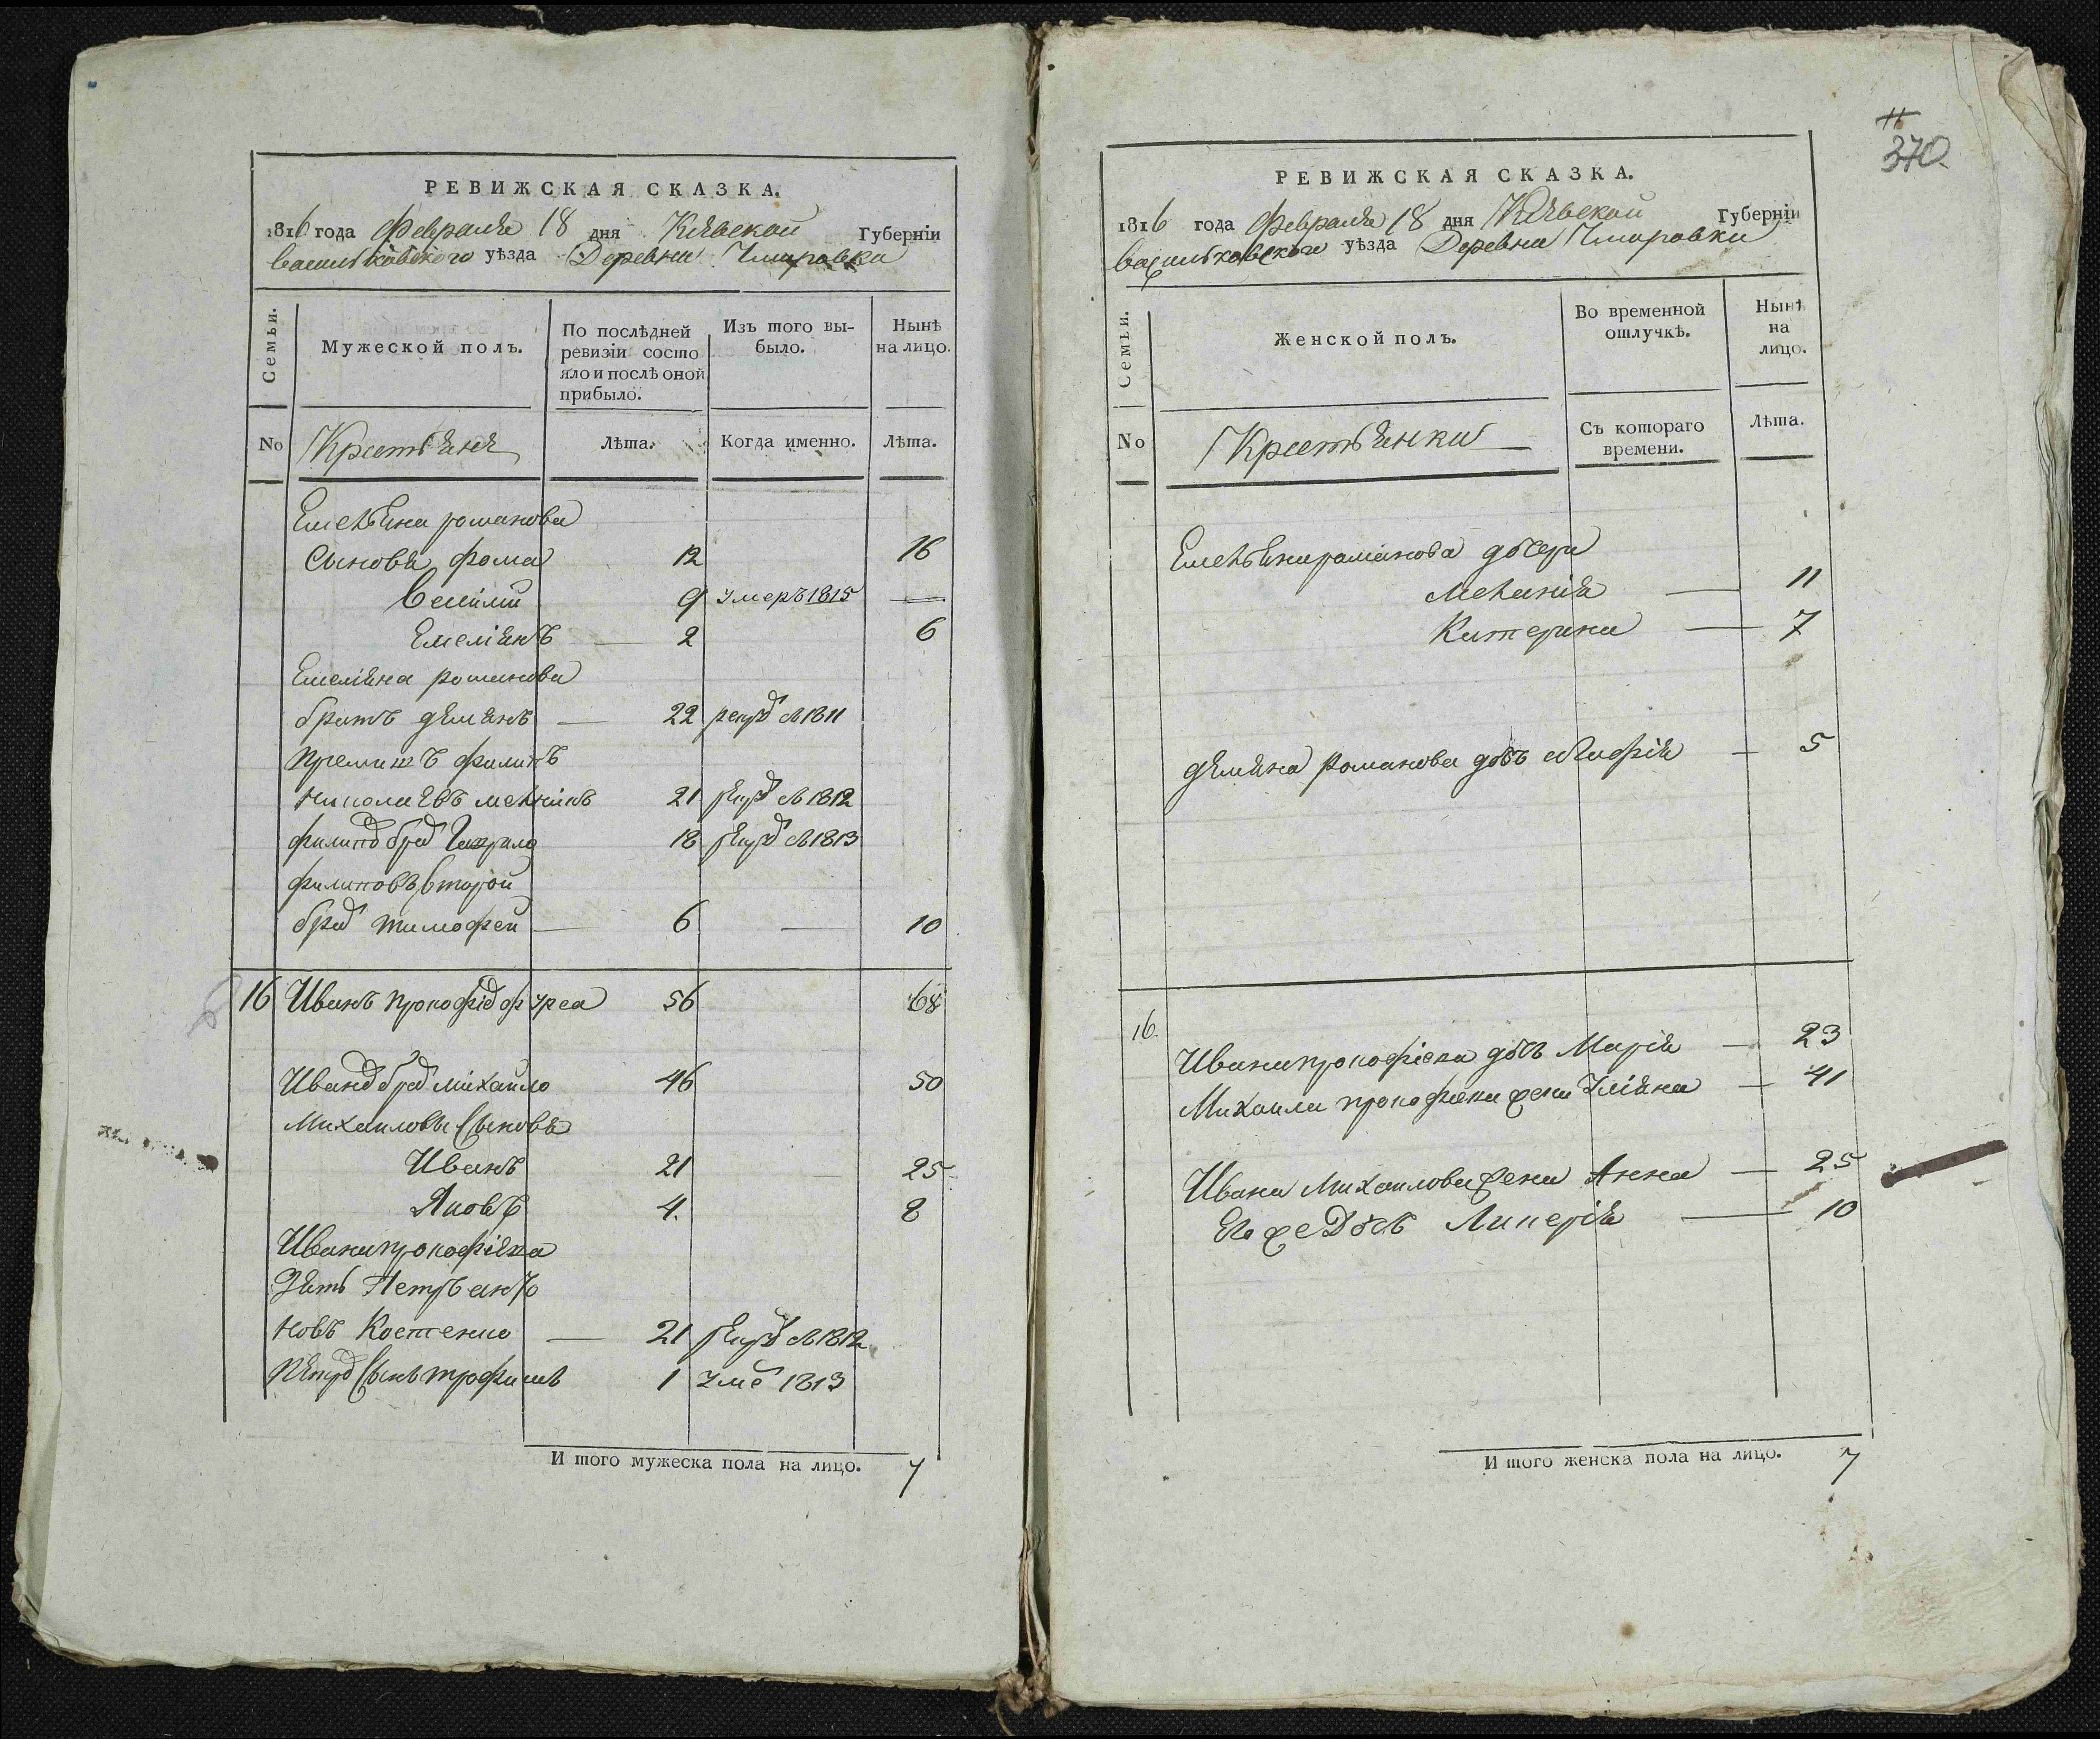 РЕВИЖСКАЯ СКАЗКА.
1816 года Февраля 18 дня Киевской Губерніи
васильковского уѣзда Деревни
Семьи.
Мужеской полъ.
По послѣдней ревизіи состо яло и послѣ оной прибыло.
Изъ того вы-было.
Нынѣ на лицо.
No
Крестьяне
Лѣта.
Когда именно.
Лѣта.
Емельяна романова
Сыновя фома 12 16
Василий 9 Умеръ 1815 —
Емеліянъ — 2 6
Емеліяна романова
братъ демянъ — 22 1811
филипъ
21 1812
брат 18 1813
филиповъ второй
брат тимофей — 6 — 10
16 Иванъ прокофіев 56 68
Иванов брат михайло 46 50
Михайловы Сыновя
Иванъ 21 25
Яковъ 4. 8
Ивана прокофіева
Зять
новъ Костенко — 21 1812
Сынъ трофимъ 1 Уме 1813
И того мужеска пола на лицо. 7
11
370
РЕВИЖСКАЯ СКАЗКА.
1816 года Февраля 18 дня Киевской Губерніи
васильковского уѣзда Деревни
Семьи.
Женской полъ.
Во временной отлучкѣ.
Нынѣ на лицо.
No
Крестьянки
Съ котораго времени.
Лѣта.
Емельяна романова дочери
Меланія — 11
Катерина — 7
демяна романова дочь — 5
16.
Ивана прокофіева дочь Марія — 23
Михайла прокофиева жена Уліяна — 41
Ивана Михайлова жена Анна — 25
Его же дочь — 10
И того женска пола на лицо. 7